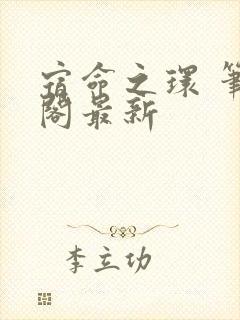 宿命之環 筆
閣最新
李立功